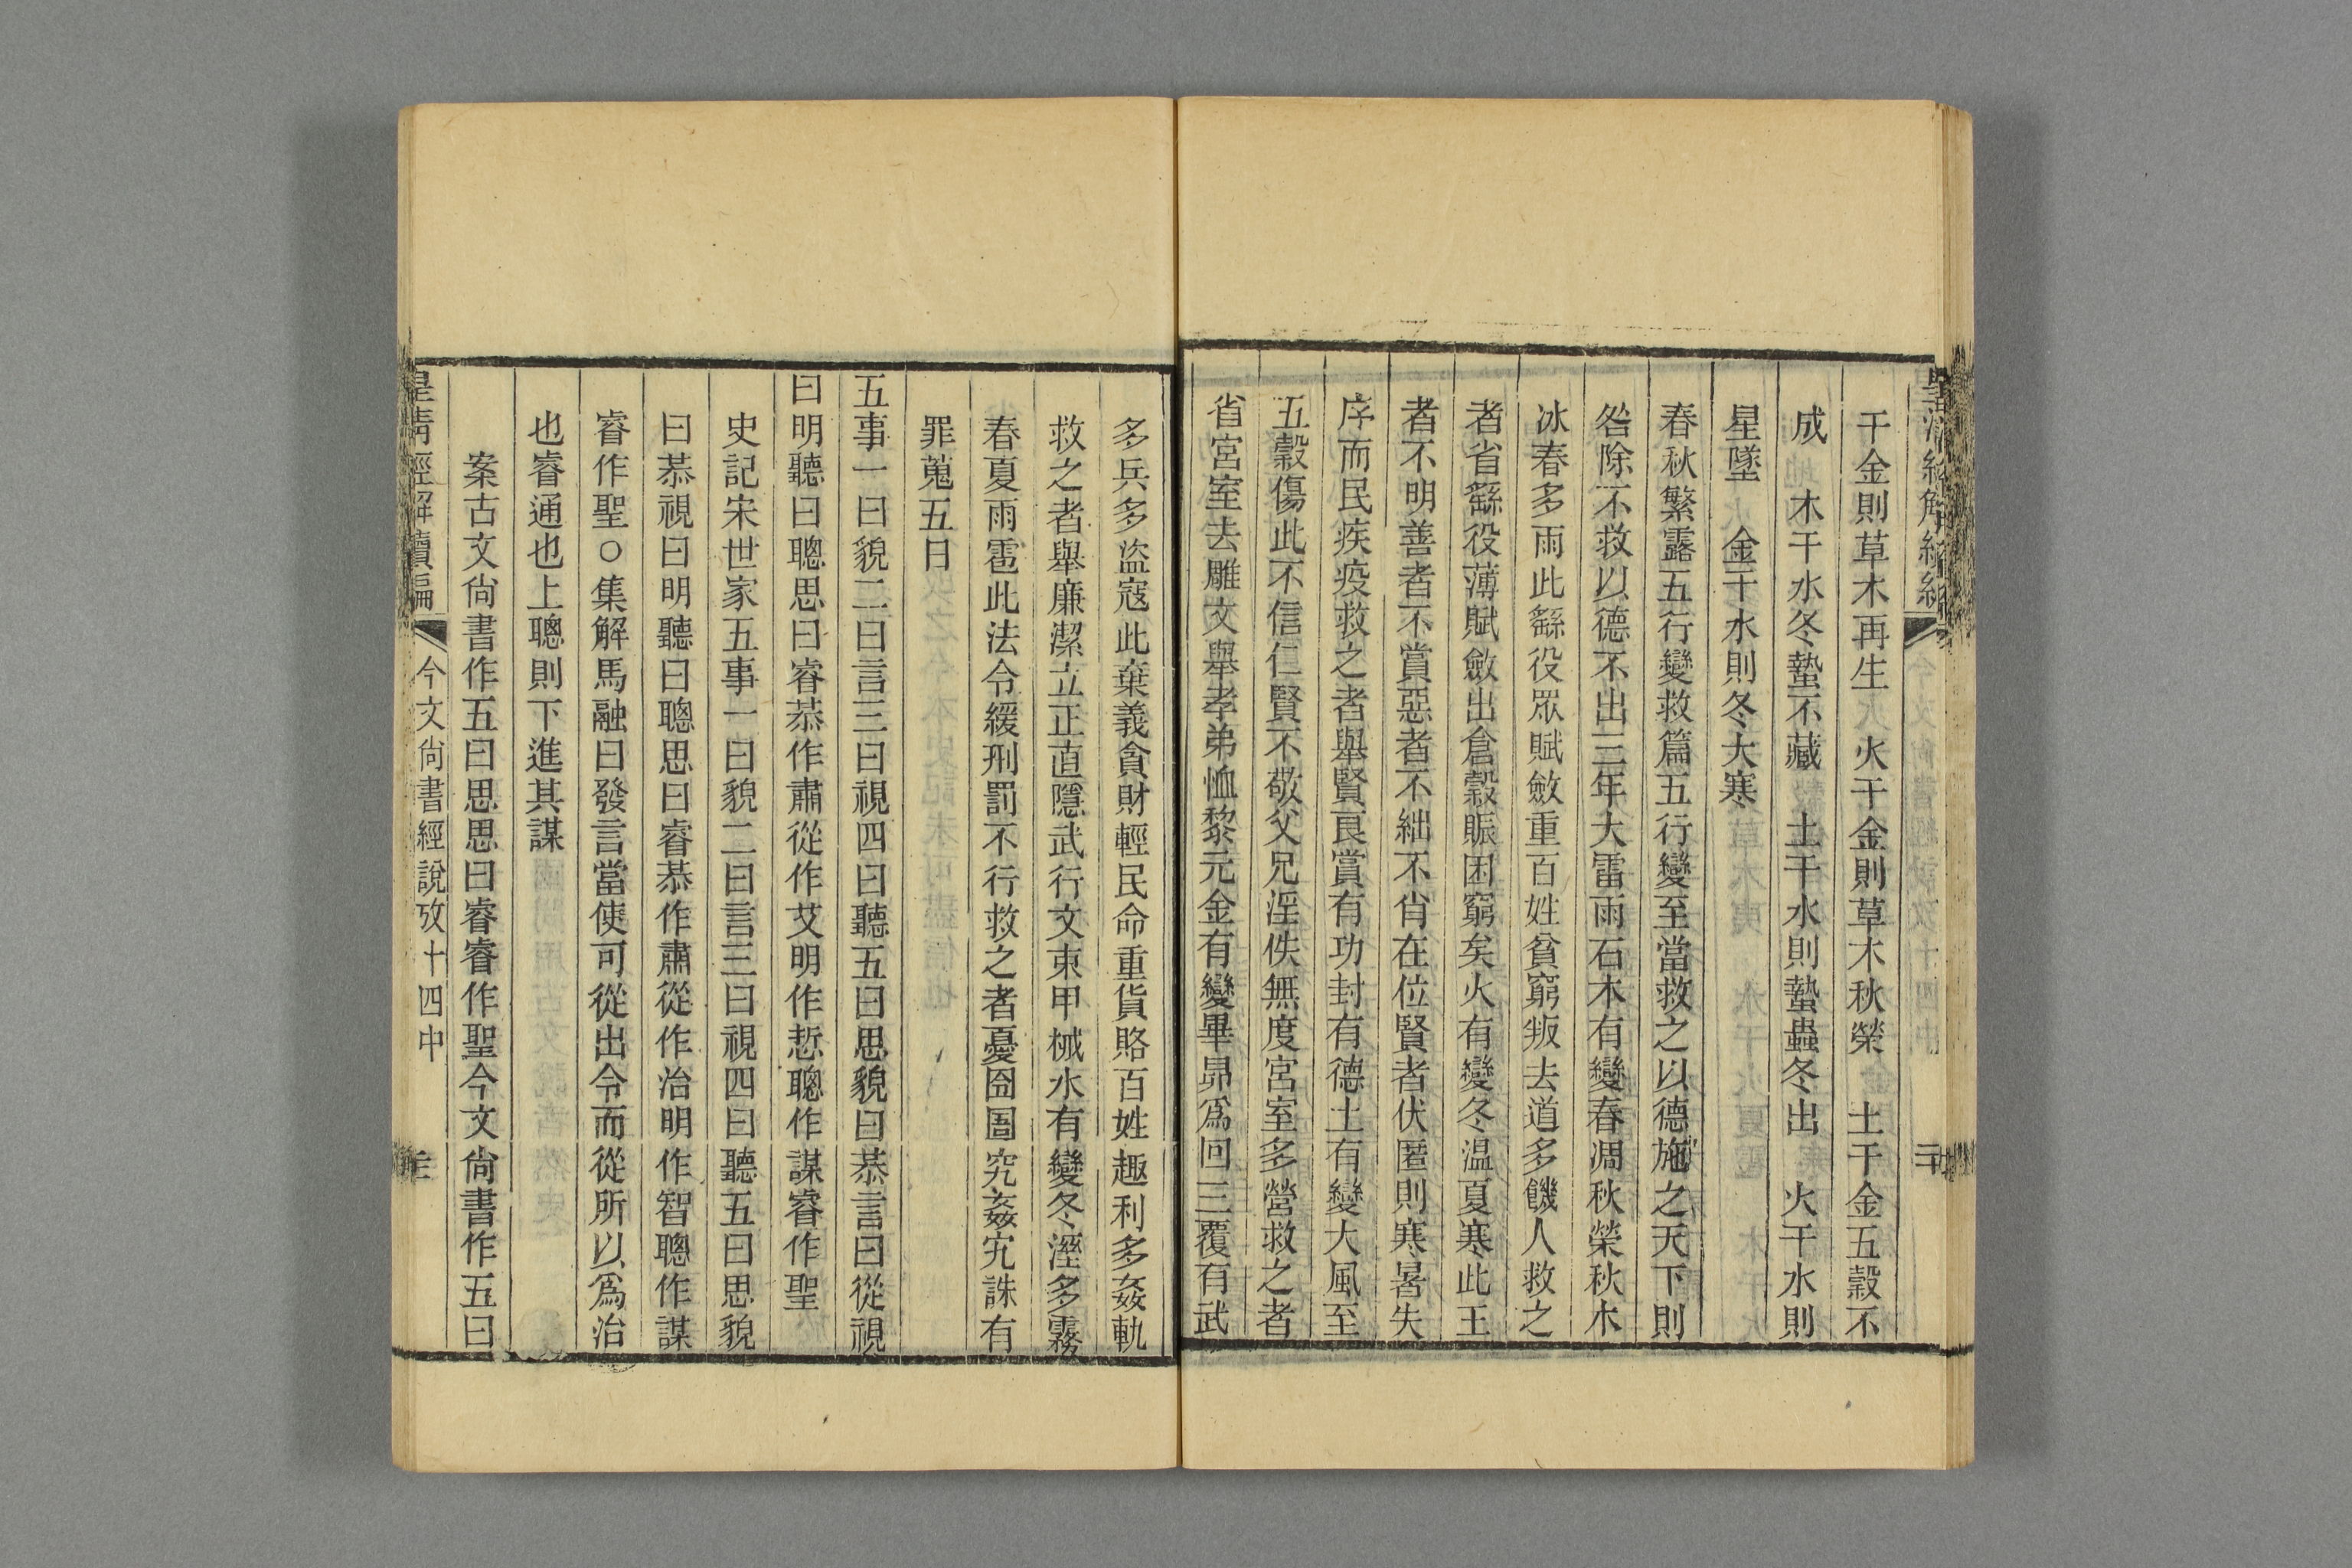 干金則草木再生　火干金則草木秋榮　土干金五穀不
成　木干水冬蟄不藏　土干水則蟄蟲冬出　火干水則
星墜　金干水則冬大寒
春秋繁露五行變救篇五行變至當救之以德施之天下則
咎除不救以德不出三年大雷雨石木有變春凋秋榮秋木
冰春多雨此繇役眾賦斂重百姓貧窮叛去道多饑人救之
者省繇役薄賦斂出倉穀賑困窮矣火有變冬温夏寒此王
者不明善者不賞惡者不絀不肖在位賢者伏匿則寒暑失
序而民疾疫救之者舉賢良賞有功封有德土有變大風至
五穀傷此不信仁賢不敬父兄淫佚無度宮室多營救之者
省宮室去雕文舉孝弟恤黎元金有變畢昴爲回三覆有武
多兵多盜寇此棄義貪財輕民命重貨賂百姓趣利多姦軌
救之者舉廉潔立正直隱武行文束甲械水有變冬溼多霧
春夏雨雹此法令緩刑罰不行救之者憂囹圄究姦宄誅有
罪蒐五日
五事一曰貌二曰言三曰視四曰聽五曰思貌曰恭言曰從視
曰明聽曰聰思曰睿恭作肅從作艾明作悊聰作謀睿作聖
史記宋世家五事一曰貌二曰言三曰視四曰聽五曰思貌
曰恭視曰明聽曰聰思曰睿恭作肅從作治明作智聰作謀
睿作聖○集解馬融曰發言當使可從出令而從所以爲治
也睿通也上聰則下進其謀
案古文尙書作五曰思思曰睿睿作聖今文尙書作五曰
皇清經解續編　今文尙書經說攷十四中